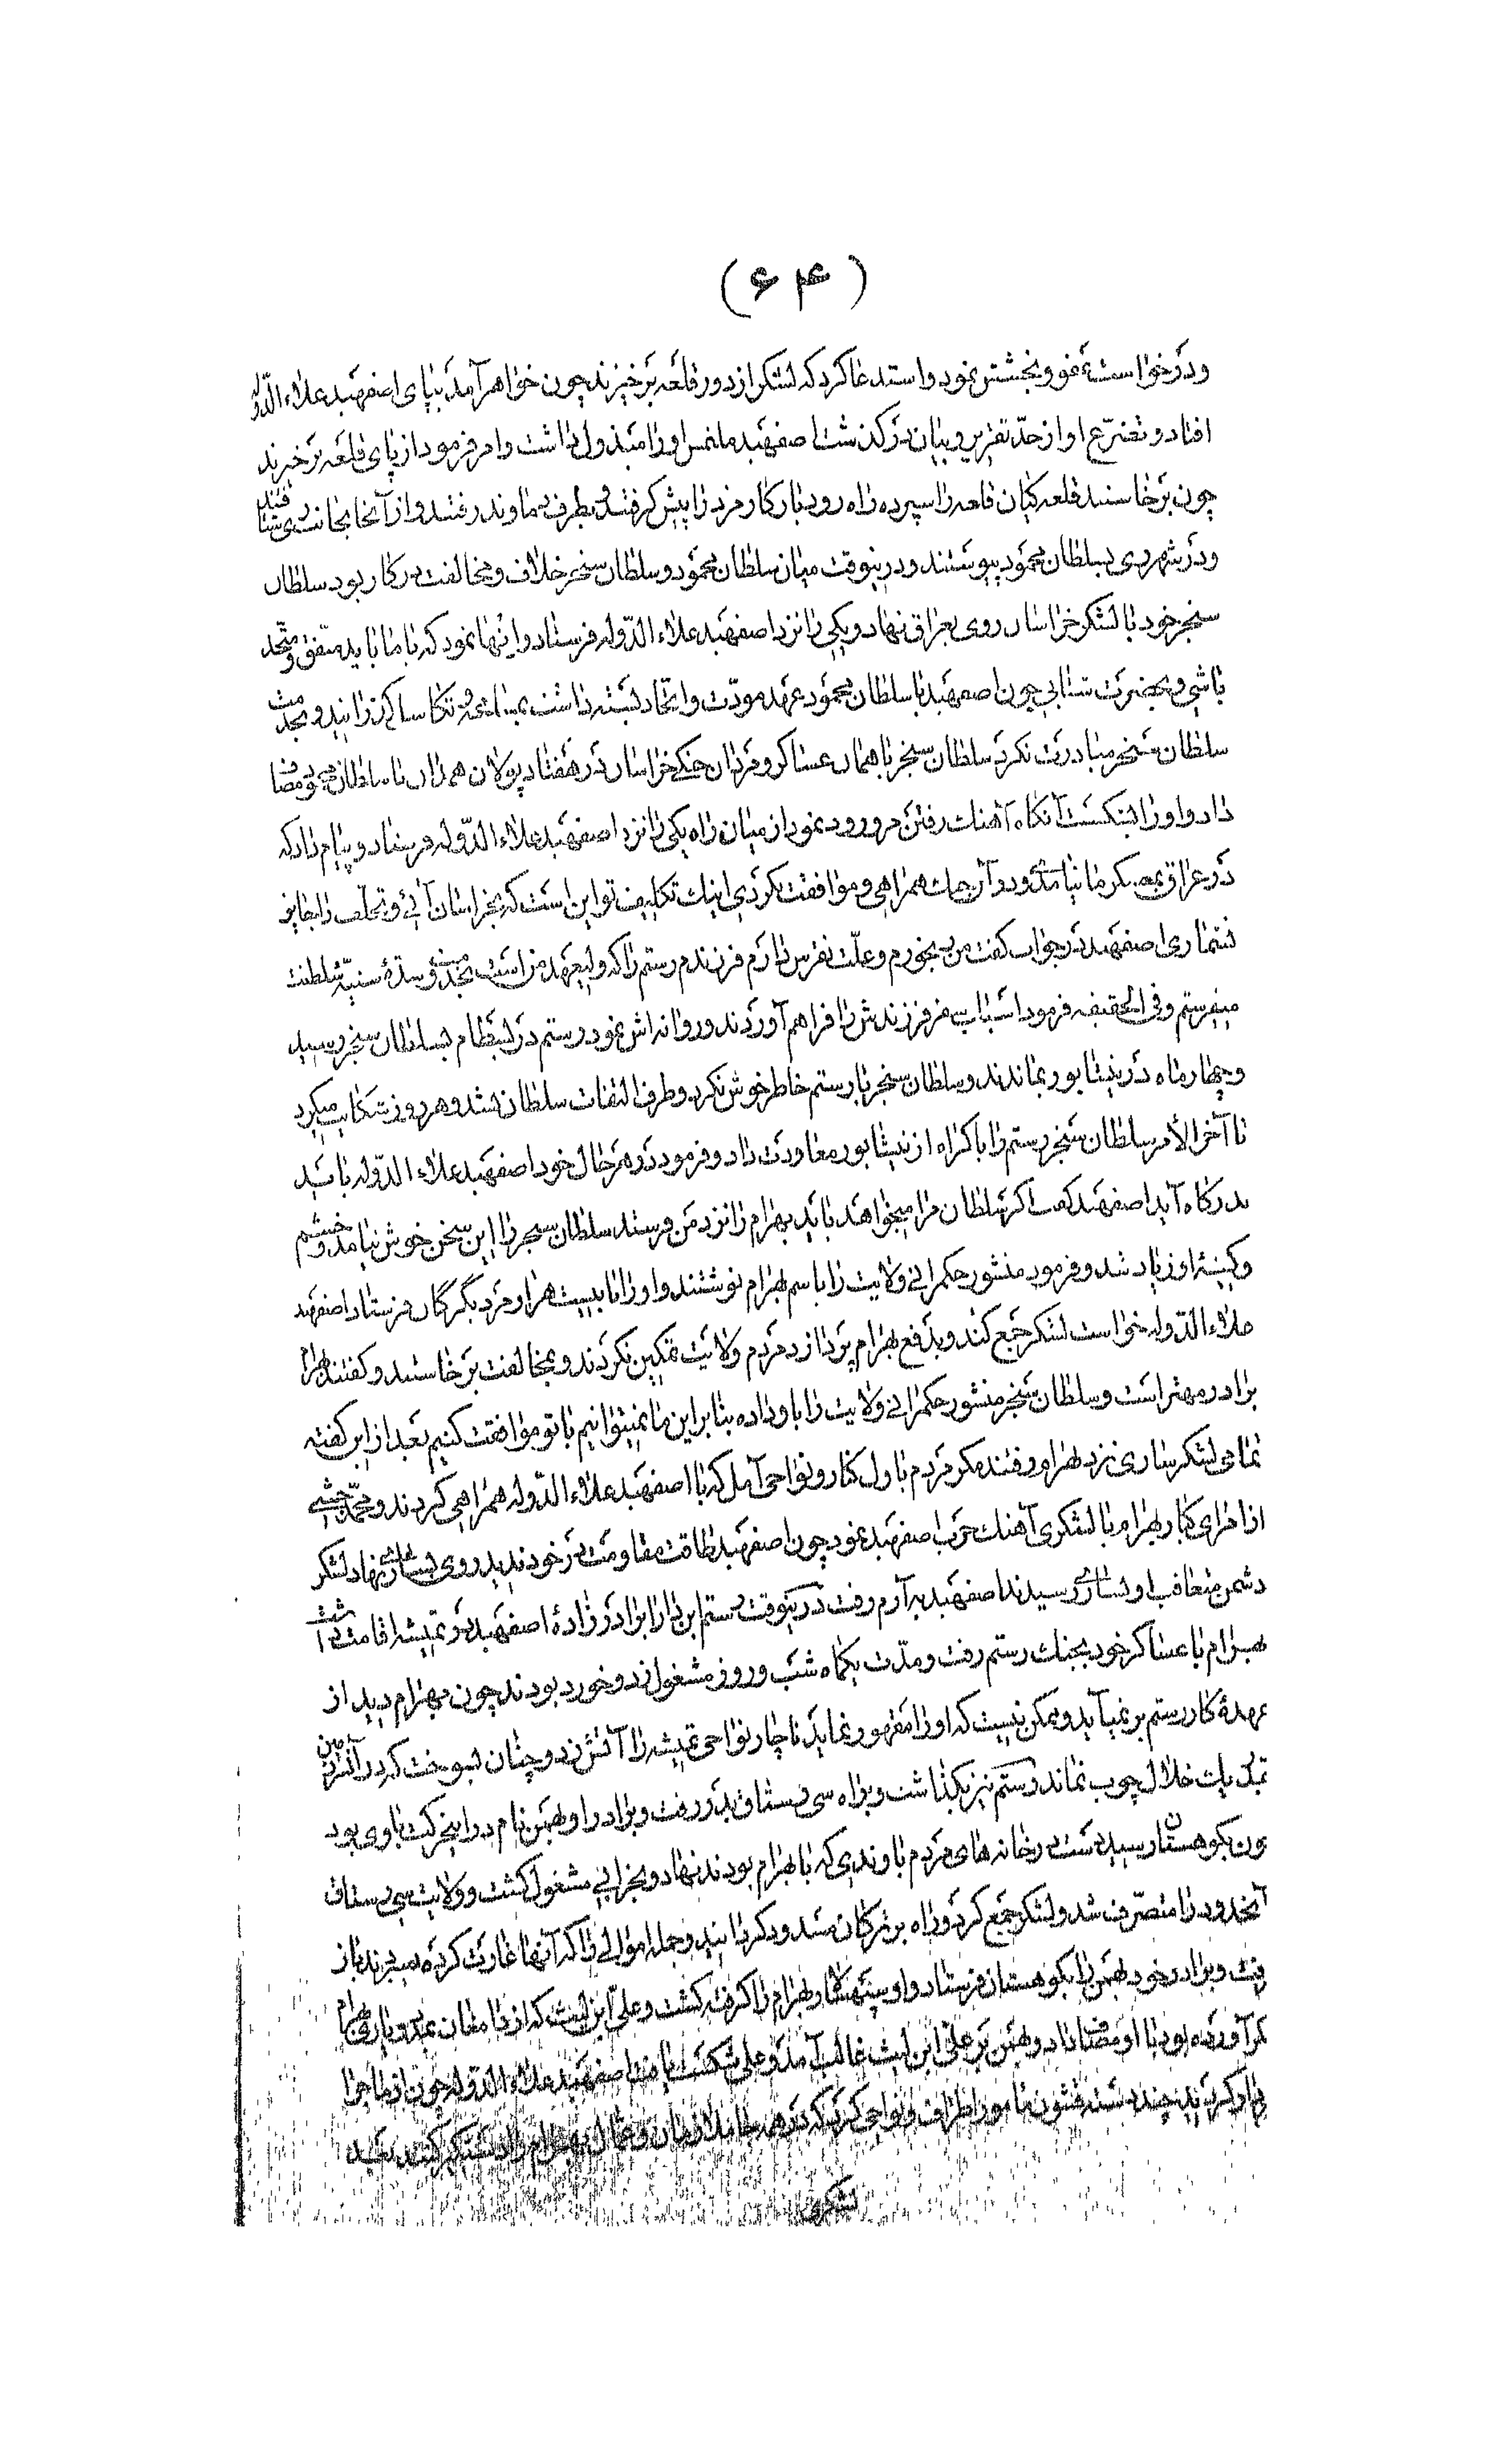 (۶۴)
و در خواست عفو و بخشش نمود و استدعا کرد که لشکر از دور قلعه بر خیزند چون خواهر آمد بپای اصفهبد علاء الدّوله
افتاد و تضرّع او از حدّ تقریر و بیان در گذشت اصفهبد ملتمس او را مبذول داشت و امر فرمود از پای قلعه بر خیزند
چون بر خاستند قلعه کیان قلعه را سپرده راه رودبار کارمزد را پیش گرفتند و بطرف دماوند رفتند و از آنجا بجانب ری شتافتند
و در شهر ری بسلطان محمود پیوستند و درینوقت میان سلطان محمود و سلطان سنجر خلاف و مخالفت در کار بود سلطان
سنجر خود با لشکر خراسان روی بعراق نهاد و یکی را نزد اصفهبد علاء الدّوله فرستاد و اینها نمود که با ما باید متّفق و متّحد
باشی و بحضرت شتابی چون اصفهبد با سلطان محمود عهد مودّت و اتّحاد بسته داشت و بخدمت
سلطان سنجر مبادرت نکرد سلطان سنجر با همان عساکر و مردان جنگی خراسان در هفتاد پولان همدان با سلطان محمود مصاف
داد و او را بشکست آنگاه آهنک رفتن مرورود نمود از میان راه یکی را نزد اصفهبد علاء الدّوله فرستاد و پیام داد که
در عراق بعسکر ما نیامدی و در آن جنک همراهی و موافقت نکردی اینک تکلیف تو این است که بخراسان آئی و تخلّف را جایز
نشماری اصفهبد در جواب گفت من رنجورم و علّت نقرس دارم فرزندم رستم را که ولیعهد من است بخدمت و سدّهٔ سنیّهٔ سلطنت
میفرستم و فی الحقیقه فرمود اسباب سفر فرزندش را فراهم آوردند و روانه اش نمود رستم در بسطام بسلطان سنجر رسید
و چهار ماه در نیشابور بماندند و سلطان سنجر با رستم خاطر خوش نکرد و طرف التفات سلطان نشد و هر روز شکایت میکرد
تا آخر الأمر سلطان سنجر رستم را با کراه از نیشابور معاودت داد و فرمود در هر حال خود اصفهبد علاء الدّوله باید
بدرگاه آید اصفهبد گفت اگر سلطان مرا میخواهد باید بهرام را نزد من فرستد سلطان سنجر را این سخن خوش نیامد و خشم
و کینهٔ او زیاد شد و فرمود منشور حکمرانی ولایت را باسم بهرام نوشتند و او را با بیست هزار مرد بگرگان فرستاد اصفهبد
علاء الدّوله خواست لشکر جمع کند و بدفع بهرام پردازد مردم ولایت تمکین نکردند و بمخالفت بر خاستند و گفتند بهرام
برادر مهتر است و سلطان سنجر منشور حکمرانی ولایت را باو داده بنا براین ما نمیتوانیم با تو موافقت کنیم بعد از این گفته
تمامی لشکر ساری نزد بهرام رفتند مگر مردم باول کنار و نواحی آمل که با اصفهبد علاء الدّوله همراهی کردند و محمّد حبشی
از امرای کبار بهرام با لشکری آهنک حرب اصفهبد نمود چون اصفهبد طاقت مقاومت در خود ندید روی بساری نهاد لشکر
دشمن متعاقب او بساری رسیدند اصفهبد به آرم رفت درینوقت رستم ابن دارا برادر زادهٔ اصفهبد در تمیشه اقامت داشت
بهرام با عساکر خود بجنک رستم رفت و مدّت یکماه شب و روز مشغول زد و خورد بودند چون بهرام دید از
عهدهٔ کار رستم بر نمیآید و ممکن نیست که او را مقهور نماید ناچار نواحی تمیشه را آتش زد و چنان بسوخت که در آن سرزمین
بقدر یک خلال چوب نماند رستم نیز بگذاشت و براه سی رستاق بدر رفت و برادر او بهمن نام در اینحرکت با وی بود
چون بکوهستان رسید دست در خانه های مردم باوندی که با بهرام بودند نهاد و بخرابی مشغول گشت و ولایت سی رستاق
آنحدود را متصرّف شد و لشکر جمع کرد و راه بر ترکان مسدود گردانید و جمله اموالی را که آنها غارت کرده میبردند باز
گرفت و برادر خود بهمن را بکوهستان فرستاد و او سپهسالار بهرام را گرفته کشت و علی ابن لیث که از دامغان بمدد بهرام
گرآورده بود با او مصاف داد و بهمن بر علی ابن لیث غالب آمد و علی شکست یافت اصفهبد علاء الدّوله چون از ماجرا
چند دسته قشون مأمور اطراف و نواحی کرد که در همه جا ملازمان و عمّال بهرام را دستگیر کنند بعد
لشکری